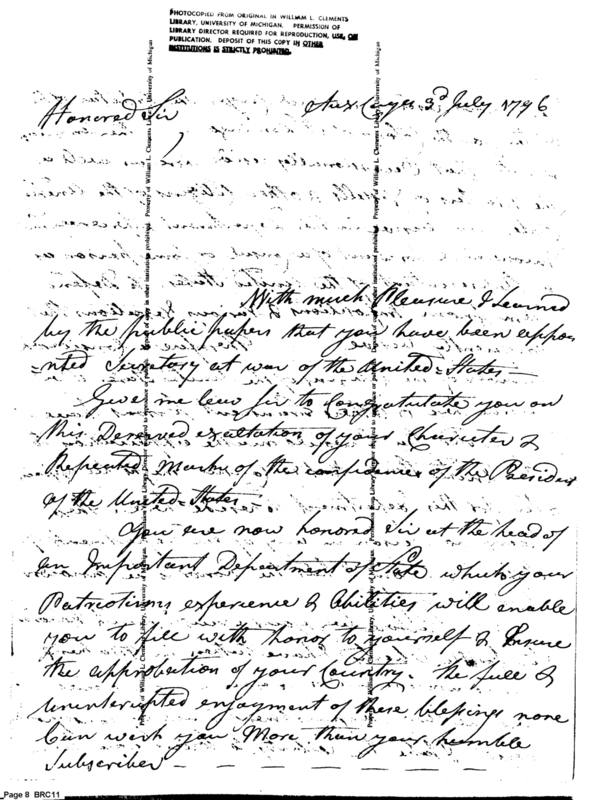 PHOTOCOPIED FROM ORIGINAL IN WILLIAM L. CLEMENTS
LIBRARY, UNIVERSITY OF MICHIGAN. PERMISSION OF
LIBRARY DIRECTOR REQUIRED FOR REPRODUCTION, USE, OR
PUBLICATION. DEPOSIT OF THIS COPY IN OTHER
INSTITUTIONS IS STRICTLY PROHIBITED.
Aux Cayes 3d July 1796
Honored Sir
With much Pleasure I Learned
by the public papers that you have been appoi
=nted Secretary at war of the United=States—
Give me leave Sir to Congratulate you on
this Deserved exaltation of your Charecter &
Repeated Marks of the confidence of the President
of the United=States
You are now honored Sir at the head of
an Important Department of State which your
Patriotisms experience & Abilities will enable
you to fill with honor to yourself & Ensure
the approbation of your Country. The full &
uninterupted enjoyment of these blessings none
Can wish you More than your humble
Subscriber — — — — — —
Page 8 BRC11